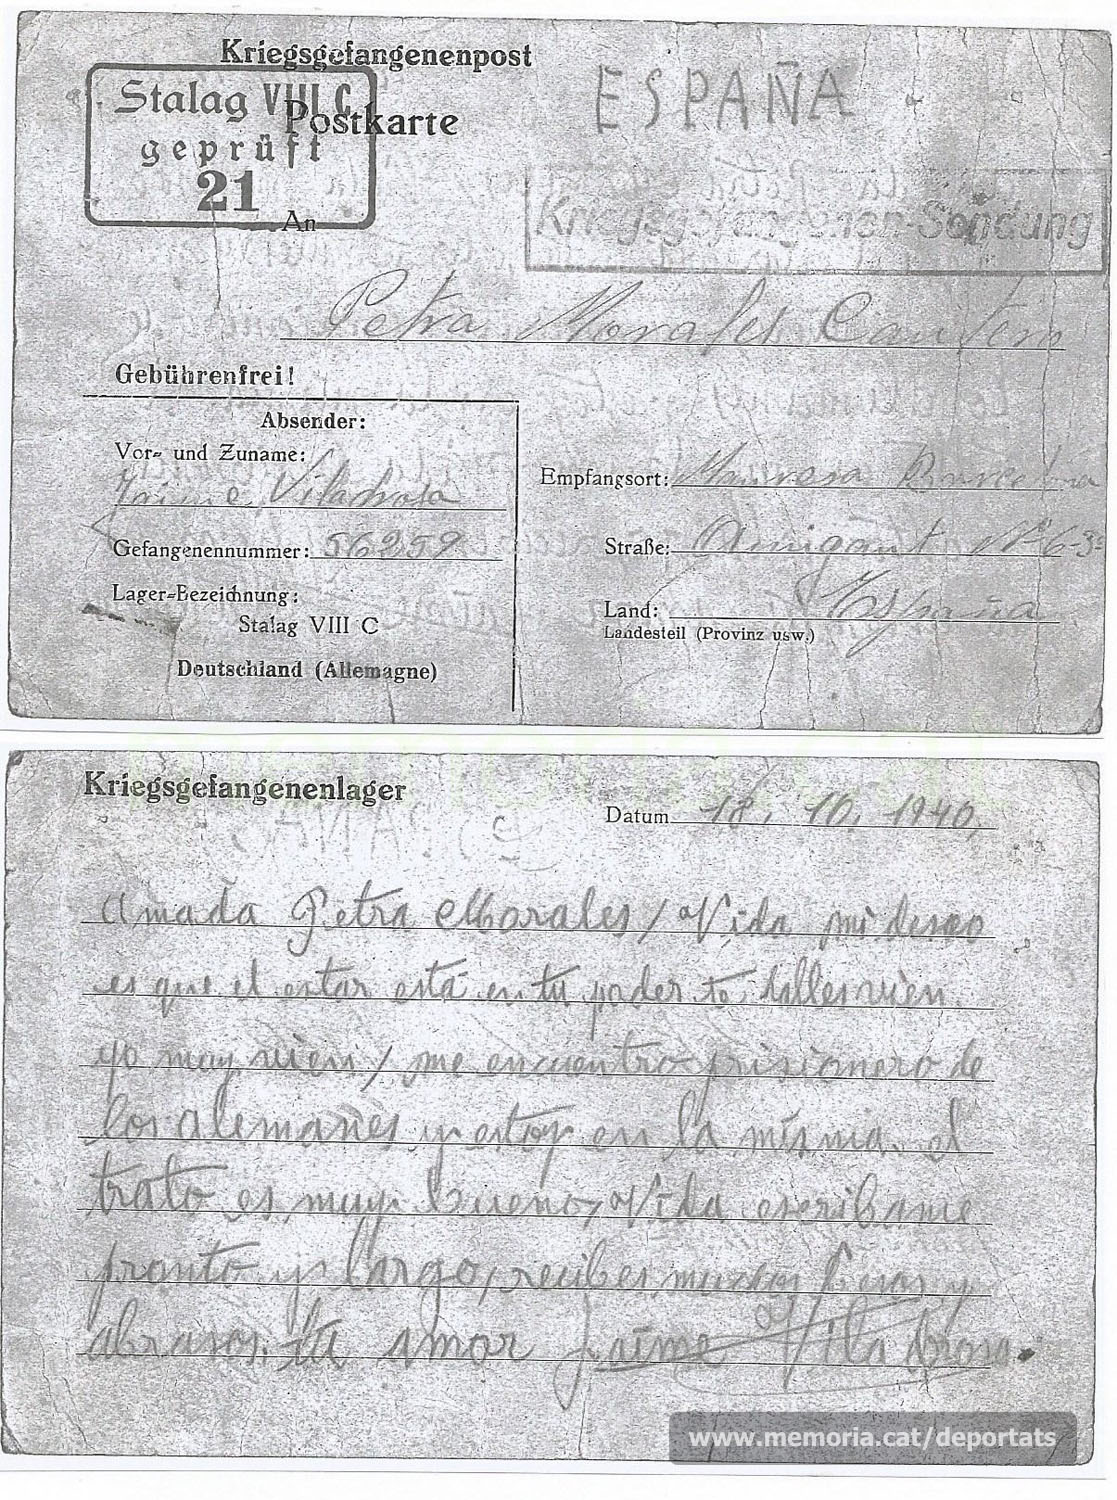 Kriegsgefangenenpost
Stalag VIII C
Postkarte
geprüft
21
An
ESPAÑA
Kriegsgefangenen-Sendung
Petra Morales Cantero
Gebührenfrei!
Absender:
Vor- und Zuname:
Jaime Viladrosa
Gefangenennummer: 56259
Lager-Bezeichnung:
Stalag VIII C
Deutschland (Allemagne)
Empfangsort: Manresa Barcelona
Straße: Amigant Nº 63
Land: España
Landesteil (Provinz usw.)
Kriegsgefangenenlager
Datum 18. 10. 1940.
Amada Petra Morales / Vida mi deseo
es que el estar está en tu poder te
yo muy vien / me encuentro prisionero de
los alemanes y estoy en la misma. el
trato es muy bueno, Vida escribame
pronto y largo, recibes muchos y
abrasos. tu amor Jaime Viladrosa.
www.memoria.cat/deportats